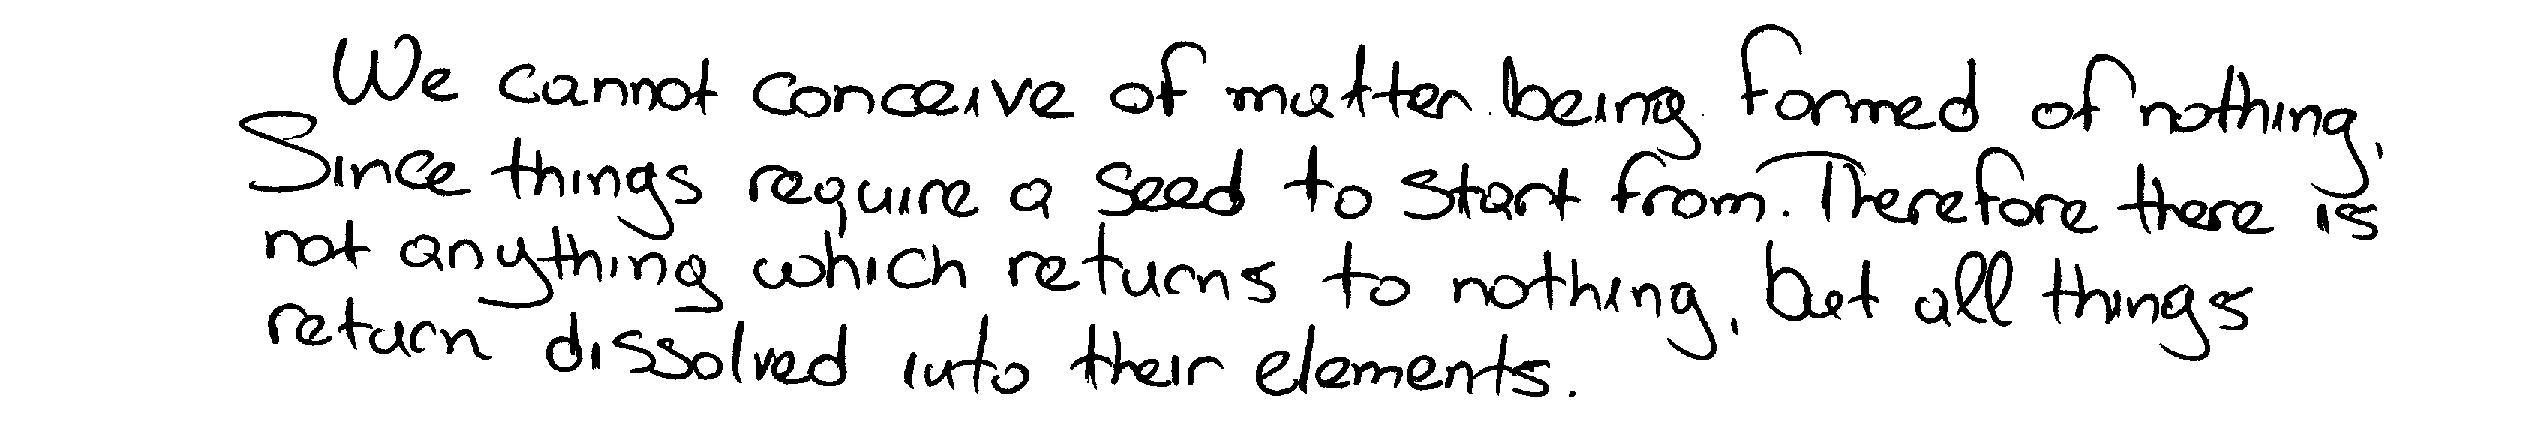 We cannot conceive of matter being formed of nothing,
Since things require a seed to start from. Therefore there is
not anything which returns to nothing, but all things
return dissolved into their elements.